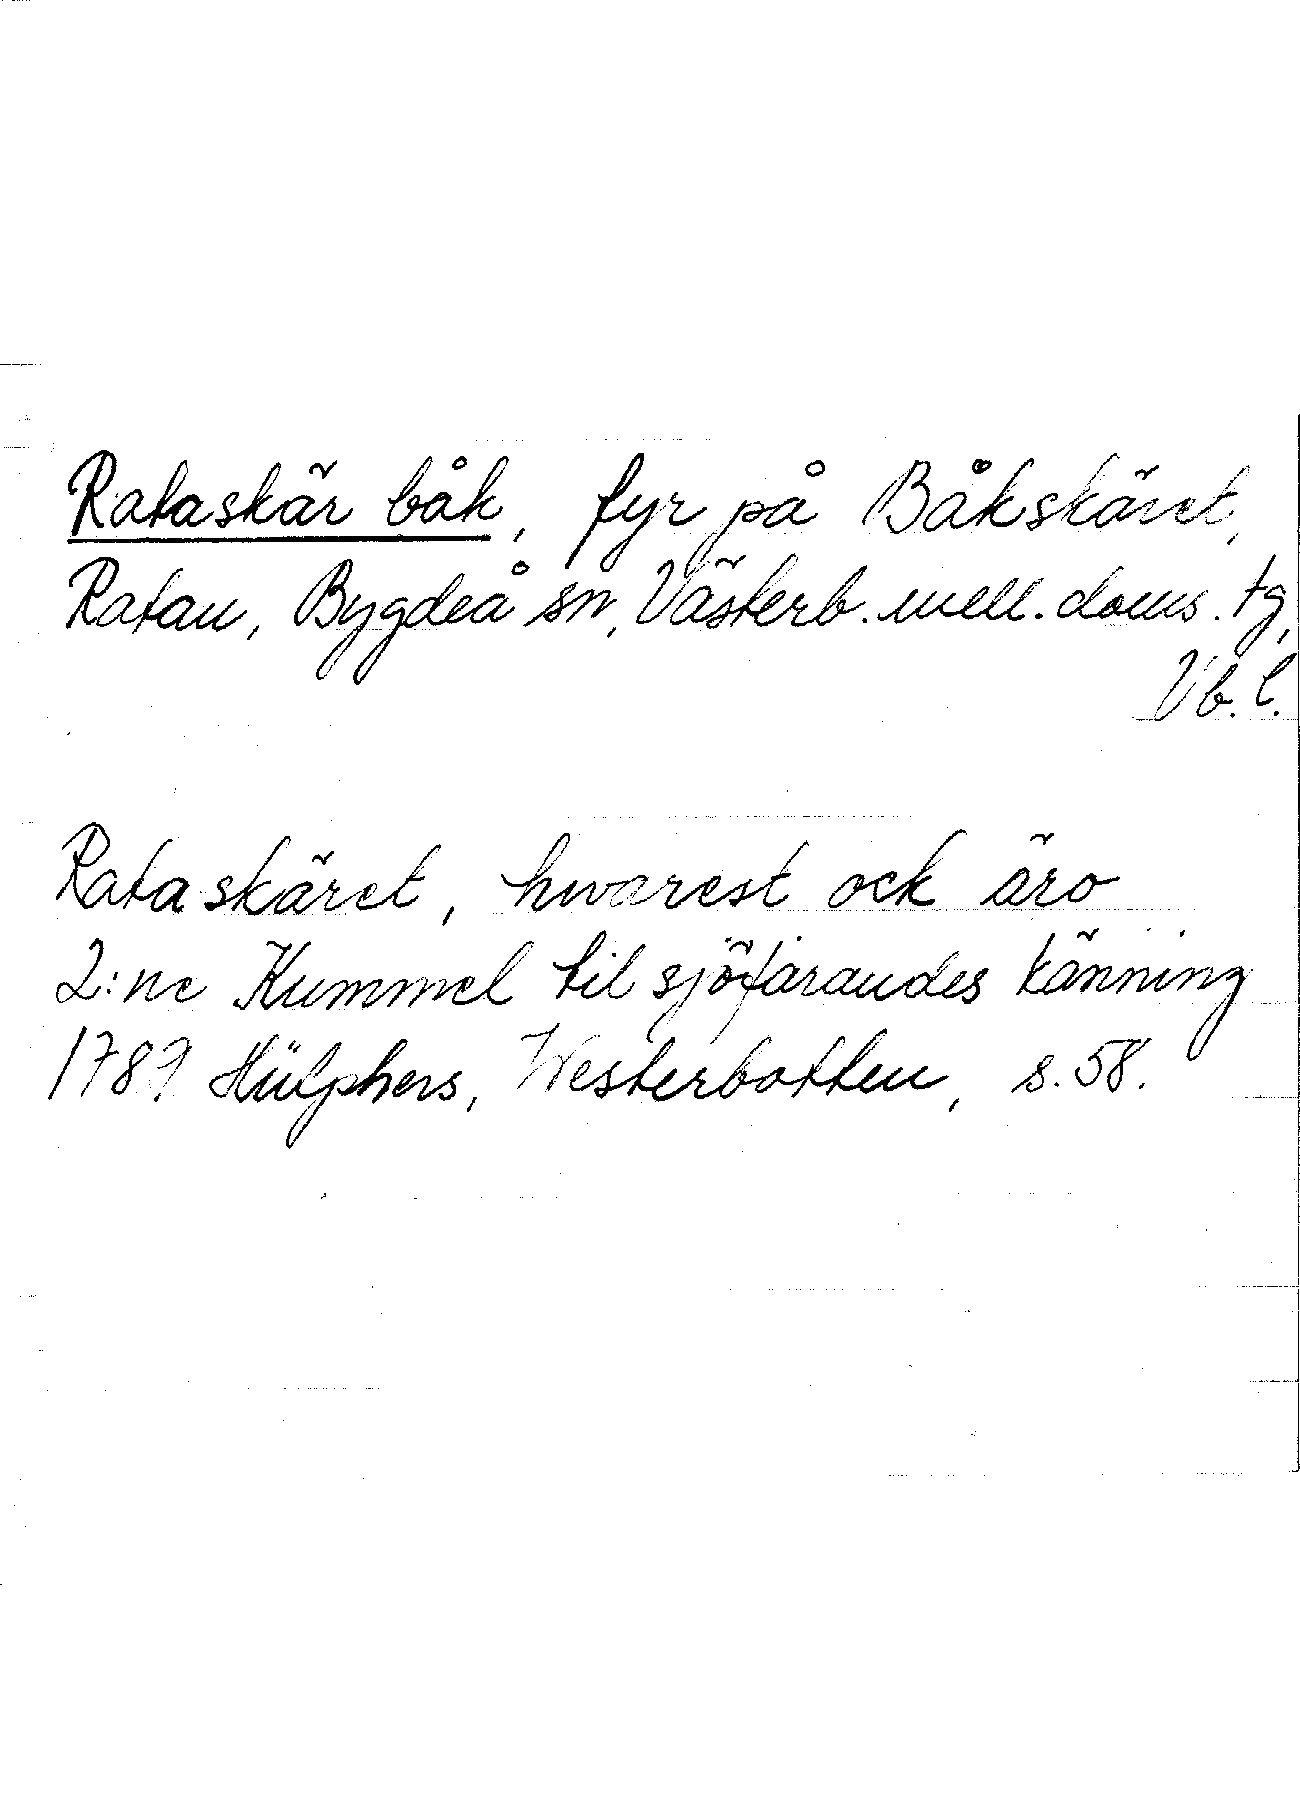 Rataskär båk, fyr på Båkskäret,
Ratan, Bygdeå sn, Västerb. mell. doms. tg,
Vb. l.
Rataskäret, hwarest ock äro
2:ne Kummel til sjöfarandes känning
1789 Hülphers, Westerbotten, s. 58.